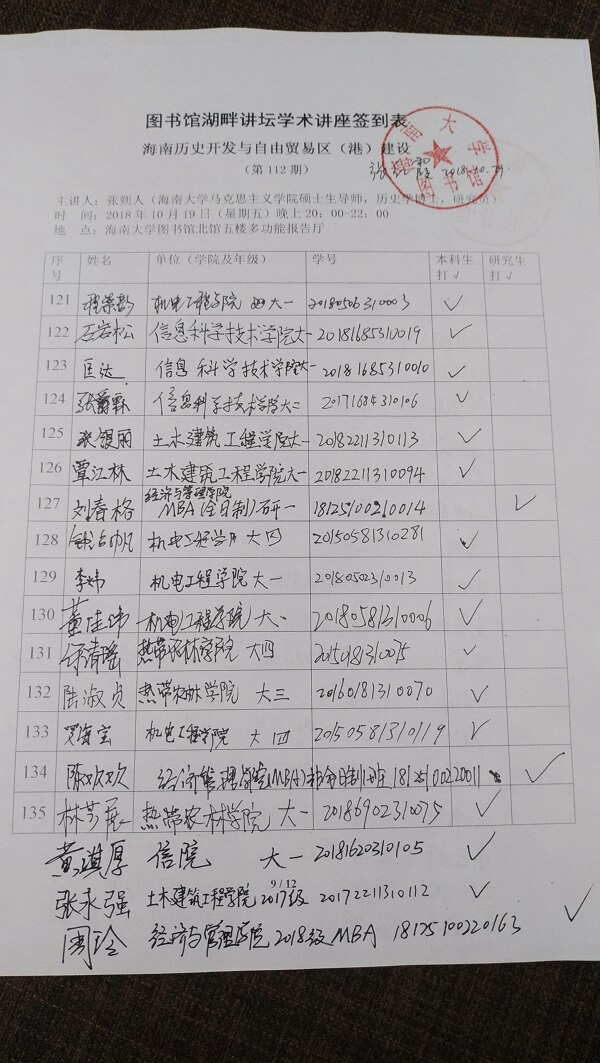 图书馆湖畔讲坛学术讲座签到表
海南历史开发与自由贸易区（港）建设
（第112期）
2018.10.29
主讲人：张朔人（海南大学马克思主义学院硕士生导师，历史学博士，研究员）
时 间：2018年10月19日（星期五）晚上20：00-22：00
地 点：海南大学图书馆北馆五楼多功能报告厅
序号 姓名 单位（学院及年级） 学号 本科生打√ 研究生打√
121 机电工程学院 大一 20180506310003 √
122 石岩松 信息科学技术学院大一 20181685310019 √
123 匡达 信息科学技术学院大一 20181685310010 √
124 张爵霖 信息科学技术学院大二 20171684310106 √
125 张银丽 土木建筑工程学院大一 20182211310113 √
126 覃江林 土木建筑工程学院大一 20182211310094 √
127 刘春格 经济与管理学院 MBA(全日制)研一 18125100210014 √
128 机电工程学院 大四 20150581310281 √
129 李炜 机电工程学院 大一 20180502310013 √
130 董佳玮 机电工程学院 大一 20180581310006 √
131 徐清瑶 热带农林学院 大四 √
132 陆淑贞 热带农林学院 大三 20160181310070 √
133 罗海宝 机电工程学院 大四 20150581310119 √
134 陈欢欢 经济管理学院(MBA)非全日制1班 √
135 热带农林学院 大一 20186902310075 √
黄淇厚 信院 大一 20181620310105 √
张永强 土木建筑工程学院2017级 20172211310112 √
9/12
周玲 经济与管理学院2018级MBA 18125100220163 √